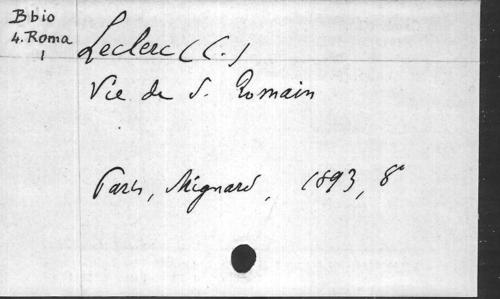 B bio
4. Roma
1
Leclerc (C.)
Vie de S. Romain
Paris, Mignard, 1893, 8°